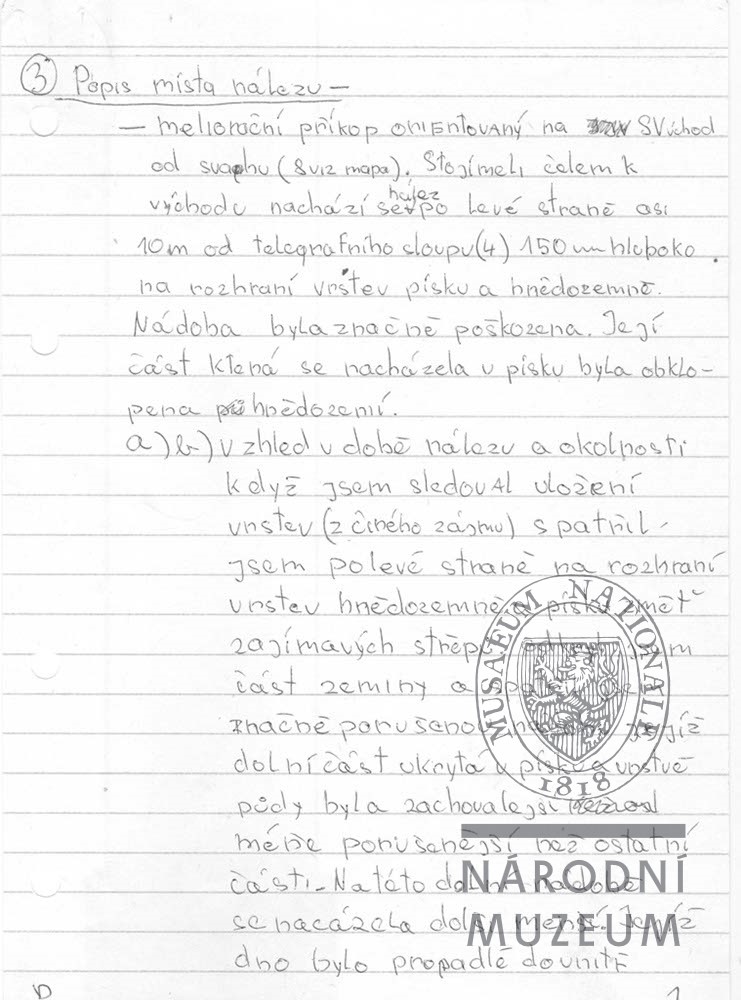 ③ Popis místa nálezu –
– meliorační příkop orientovaný na SVýchod
od svahu (8 viz mapa). Stojímeli čelem k
východu nachází se nález po levé straně asi
10m od telegrafního sloupu (4) 150 hluboko
na rozhraní vrstev písku a hnědozemně.
Nádoba byla značně poškozena. Její
část která se nacházela v písku byla obklo-
pena hnědozemí.
a) b) vzhled v době nálezu a okolnosti
když jsem sledoval uložení
vrstev (z činého zájmu) spatřil
jsem po levé straně na rozhraní
vrstev hnědozemně a písku změť
zajímavých střepů
část zeminy a
značně porušenou jejíž
dolní část ukrytá v písku a vrstvě
půdy byla zachovalejší
méně porušenější než ostatní
části – Na této dolní nádobě
se nacázela další menší. Jejíž
dno bylo propadlé dovnitř
MUSAEUM NATIONALE
1818
NÁRODNÍ
MUZEUM